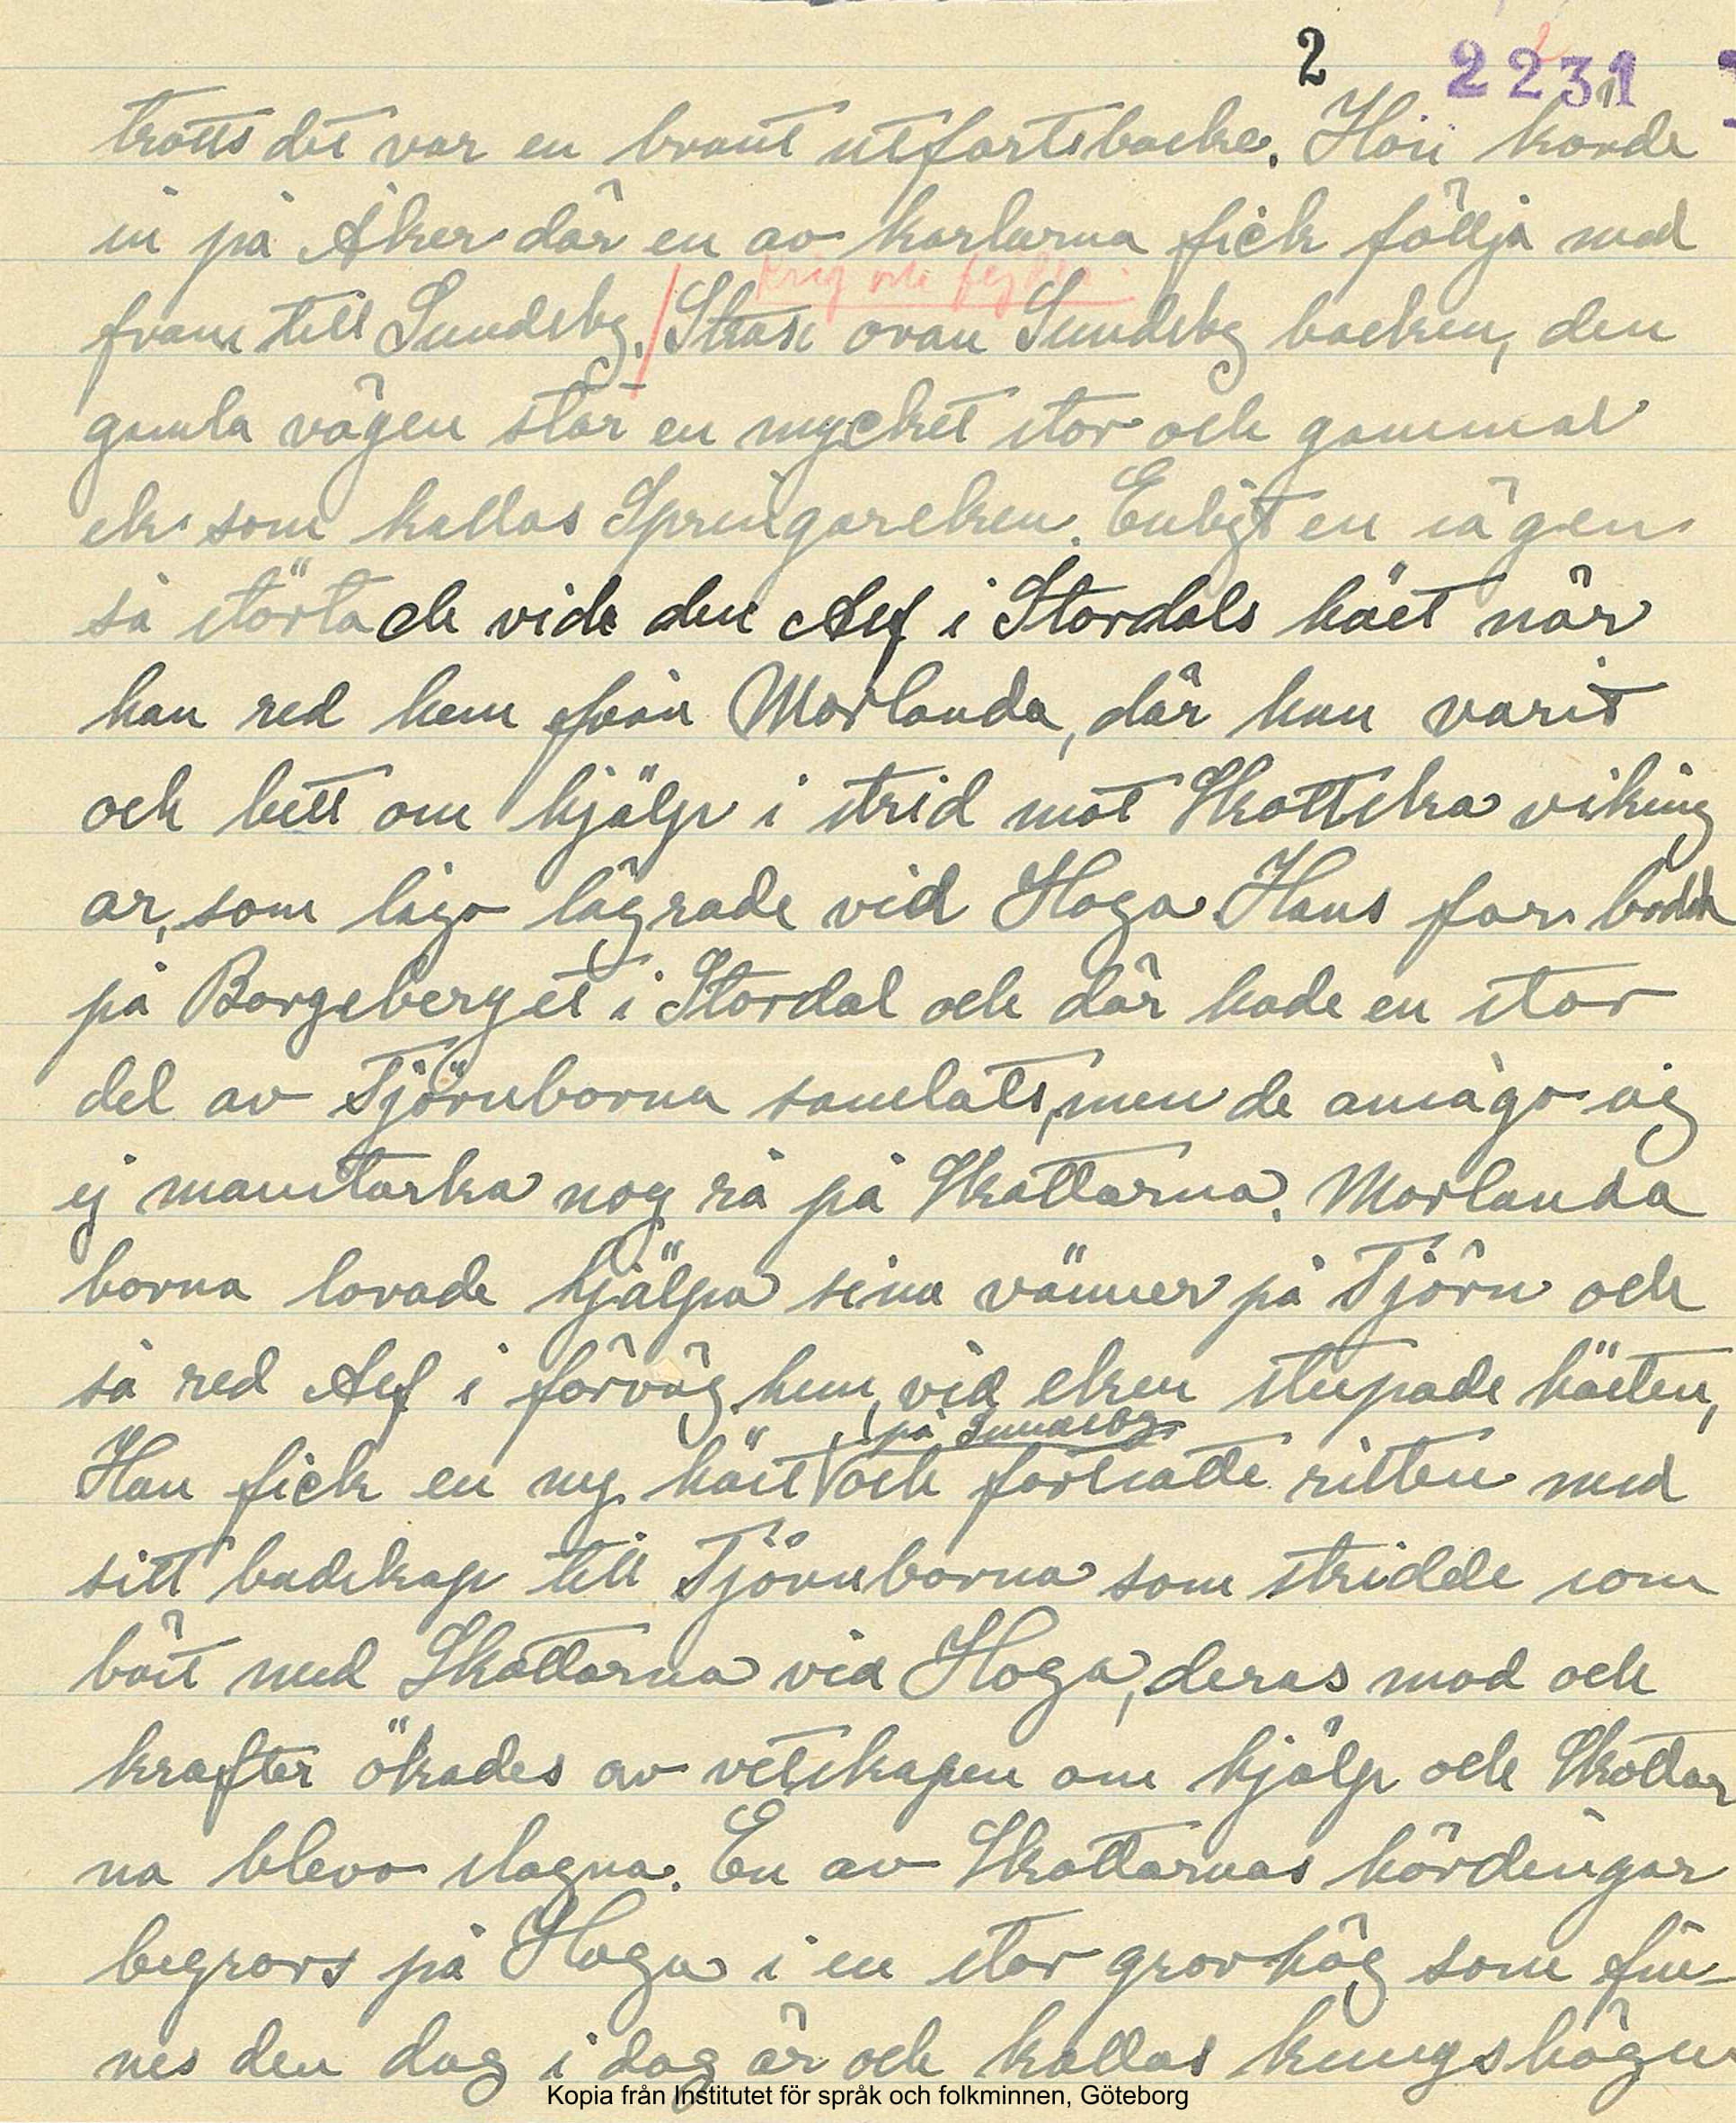 2 2231
trotts det var en brant utfartsbacke. Hon körde
in på Åker där en av karlarna fick föllja med
fram till Sundsby. Strax ovan Sundsby backen, den
Krig och fejder.
gamla vägen står en mycket stor och gammal
ek som kallas Springareken. Enligt en sägen
så störtade vide den Alf i Stordals häst när
han red hem från Morlanda, där han varit
och bett om hjälp i strid mot Skottska viking
ar, som lågo lägrade vid Hoga. Hans far bodde
på Borgeberget i Stordal och där hade en stor
del av Tjörnborna samlats, men de ansågo sig
ej manstarka nog rå på Skottarna. Morlanda
borna lovade hjälpa sina vänner på Tjörn och
så red Alf i förväg hem, vid eken stupade hästen,
på Sundsby
Han fick en ny häst och fortsatte ritten med
sitt budskap till Tjörnborna som stridde som
bäst med Skottarna vid Hoga, deras mod och
krafter ökades av vetskapen om hjälp och Skottar
na blevo slagna. En av Skottarnas hördingar
begravs på Hoga i en stor gravhög som fin-
nes den dag i dag är och kallas kungshögen
Kopia från Institutet för språk och folkminnen, Göteborg